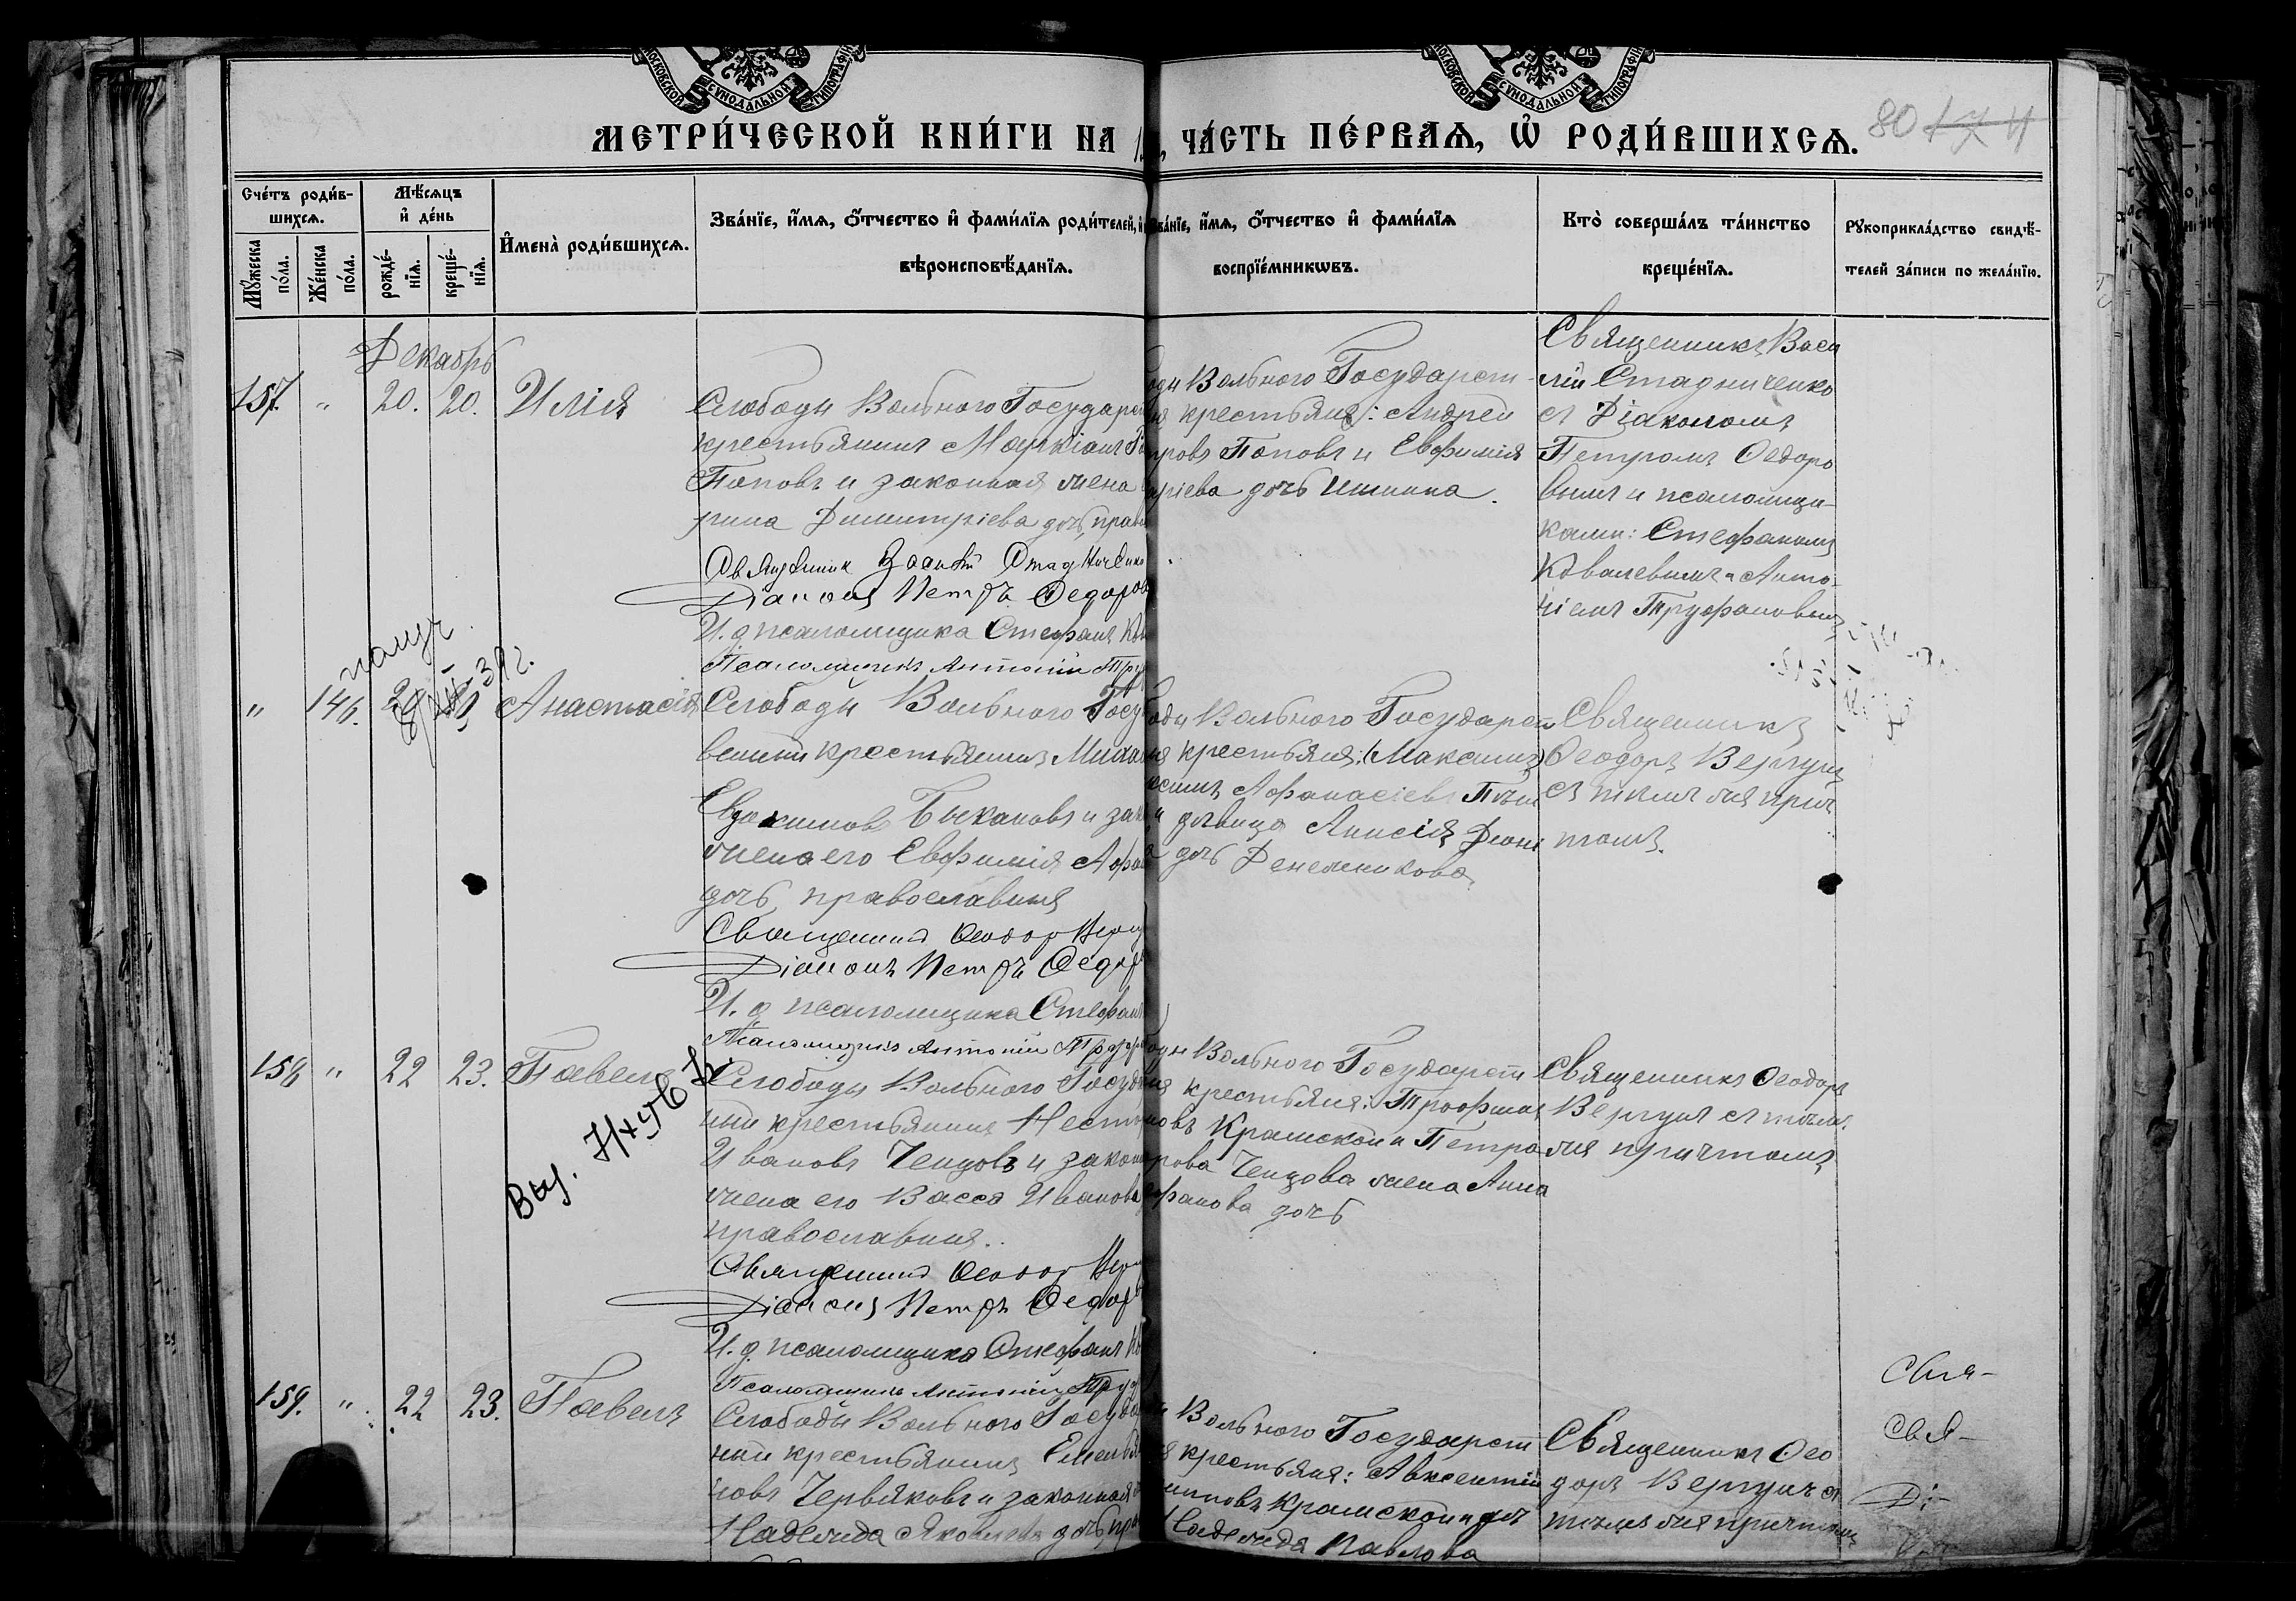 МОСКОВСКОЙ СѴНОДАЛЬНОЙ ТИПОГРАФІИ
МОСКОВСКОЙ СѴНОДАЛЬНОЙ ТИПОГРАФІИ
МЕТРИ́ЧЕСКОЙ КНИ́ГИ НА
ЧА́СТЬ ПЕ́РВАѦ, Ѡ҆ РОДИ́ВШИХСѦ.
80
Сче́тъ роди́в-
шихсѧ.
Мѣ́сѧцъ
и҆ де́нь
Мꙋ́жеска
по́ла.
Же́нска
по́ла.
рожде́-
нїѧ.
креще́-
нїѧ.
И҆мена̀ роди́вшихсѧ.
Зва́нїе, и҆́мѧ, ѻ҆́тчество и҆ фами́лїѧ роди́телей, и҆
вѣроисповѣ́данїѧ.
Зва́нїе, и҆́мѧ, ѻ҆́тчество и҆ фами́лїѧ
воспрїе́мникѡвъ.
Кто̀ соверша́лъ та́инство
креще́нїѧ.
Рꙋкоприкла́дство свидѣ́-
телей за́писи по жела́нїю.
Декабрь
157. " 20. 20. Илія
Слободы Вольного Государст
крестьянинъ Маркіанъ
Поповъ и законная жена
рина Димитріева дочь, прав
Священник Василій Стадниченко
Діаконъ Петръ Федоров
И. д псаломщика Стефанъ Ков
Псаломщикъ Антоній Тру
оды Вольного Государст-
ня крестьяне: Андрей
тровъ Поповъ и Евфимія
тріева дочь Ишина.
Священникъ Васи
лій Стадниченко
съ Діакономъ
Петромъ Федоро
вымъ и псаломщи-
ками: Стефаномъ
Ковалевымъ и Анто-
ніемъ Труфановымъ
" 146. Анастасія
Слободы Вольного Госуд
венный крестьянинъ Михаи
Евдокимовъ Быкановъ и зак
жена его Евфимія Афан
дочь, православные
Священникъ Феодор Верг
Діаконъ Петръ Федор
И. д псаломщика Стефанъ
Псаломщикъ Антоній Труф
оды Вольного Государст
ня крестьяне: (Максимъ)
ксимъ Афанасіевъ
и дѣвица Анисія Діони
а дочь Денежникова
Священникъ
Феодоръ Вергунъ
съ тѣмъ же прич
томъ.
158 " 22 23. Павелъ
Выд. 7/X 916 г.
Слободы Вольного Госуд
ный крестьянинъ Несте
Ивановъ Ченцовъ и закон
жена его Васса Иванова
православные.
Священникъ Феодор Верг
Діаконъ Петръ Федор
И. д. псаломщика Стефанъ Ко
Псаломщикъ Антоній Труф
оды Вольного Государст
ня крестьяне: Трофимъ
новъ Крамской и Петра
рова Ченцова жена Анна
офанова дочь
Священникъ Феодоръ
Вергунъ съ тѣмъ
же причтомъ
159. " 22 23. Павелъ
Слободы Вольного Госуда
ный крестьянинъ Емельян
новъ Червяковъ и законная
Надежда Яковлева дочь, пра
Вольного Государст
я крестьяне: Авксентій
иповъ Крамской и дѣв
Надежда Павлова
Священникъ Фео
доръ Вергунъ съ
тѣмъ же причтомъ
Свя-
Свя-
Ді-